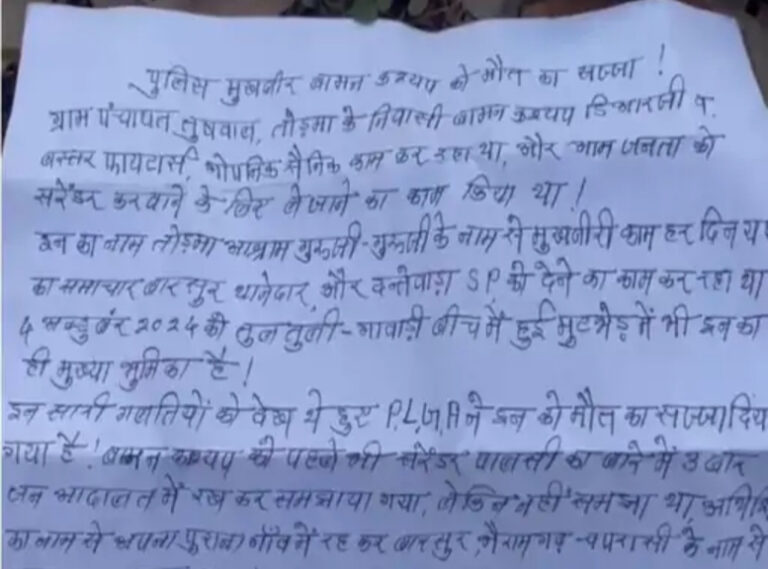 पुलिस मुखबीर बामन कश्यप को मौत का सज्जा !
ग्राम पंचायत तुषवाल, तोड़मा के निवासी बामन कश्यप डिआरजी व
बस्तर फायटार्स, गोपनिक सैनिक काम कर रहा था, और आम जनता को
सरेंडर करवाने के लिए ले जाने का काम किया था !
इन का नाम तोड़मा आश्राम गुरूजी-गुरूजी के नाम से मुखबीरी काम हर दिन
का समाचार बारसुर थानेदार, और दन्तेवाड़ा SP को देने का काम कर रहा था
4 अक्टुबंर 2024 को तुलतुली-गावाड़ी बीच में हुई मुटभेड़ में भी इन का
ही मुख्या भुमिका है !
इन सारी गलतियों को देख ये हुए P,L,G,A ने इन को मौत का सज्जा दिय
गया है ! बामन कश्यप को पहले भी सरेंडर पालसी का बारे में 3 बार
जन आदालत में रख कर समझाया गया, लेकिन नहीं समझा था,
का नाम से अपना पुराना गाँव में रह कर बारसुर, भैरामगढ़-चपरासी के नाम से